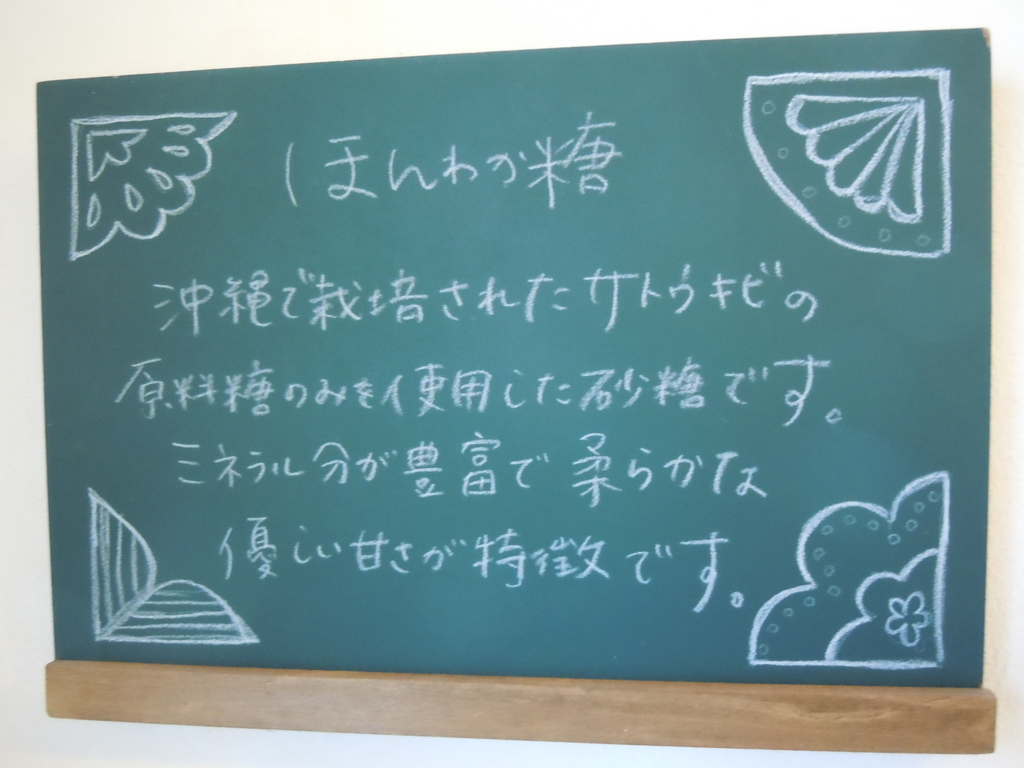 ほんわか糖
沖縄で栽培されたサトウキビの
原料糖のみを使用した砂糖です。
ミネラル分が豊富で柔らかな
優しい甘さが特徴です。